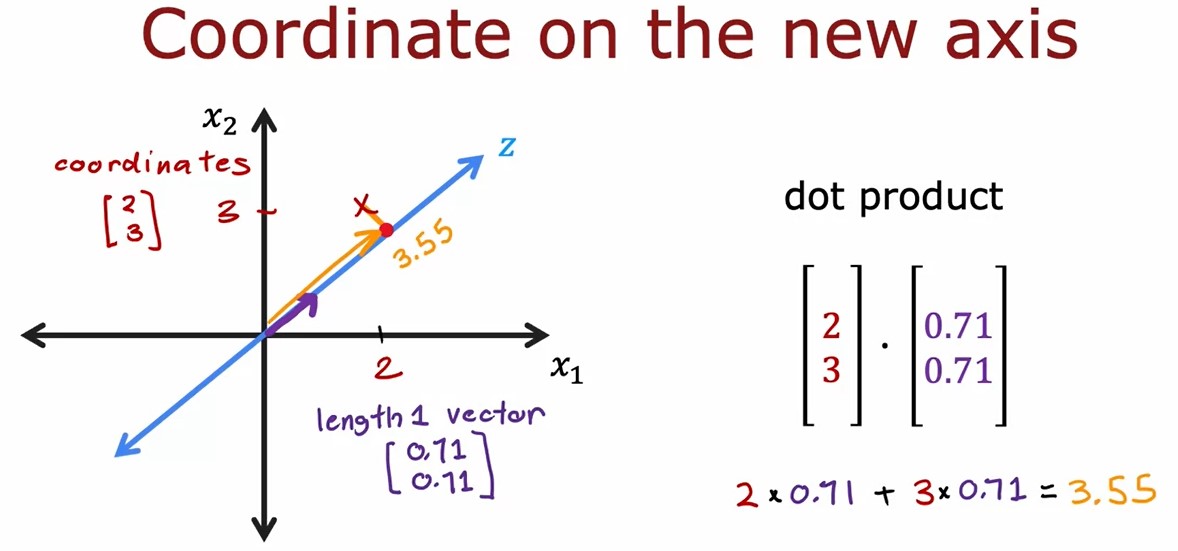 Coordinate on the new axis
x₂
z
coordinates
[2
3]
3
x
3.55
2
x₁
length 1 vector
[0.71
0.71]
dot product
[2
3] · [0.71
0.71]
2 × 0.71 + 3 × 0.71 = 3.55